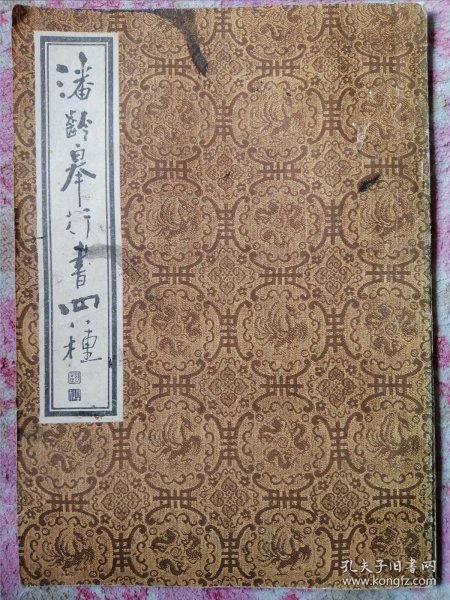 潘齡皋行書四種
孔夫子旧书网
www.kongfz.com